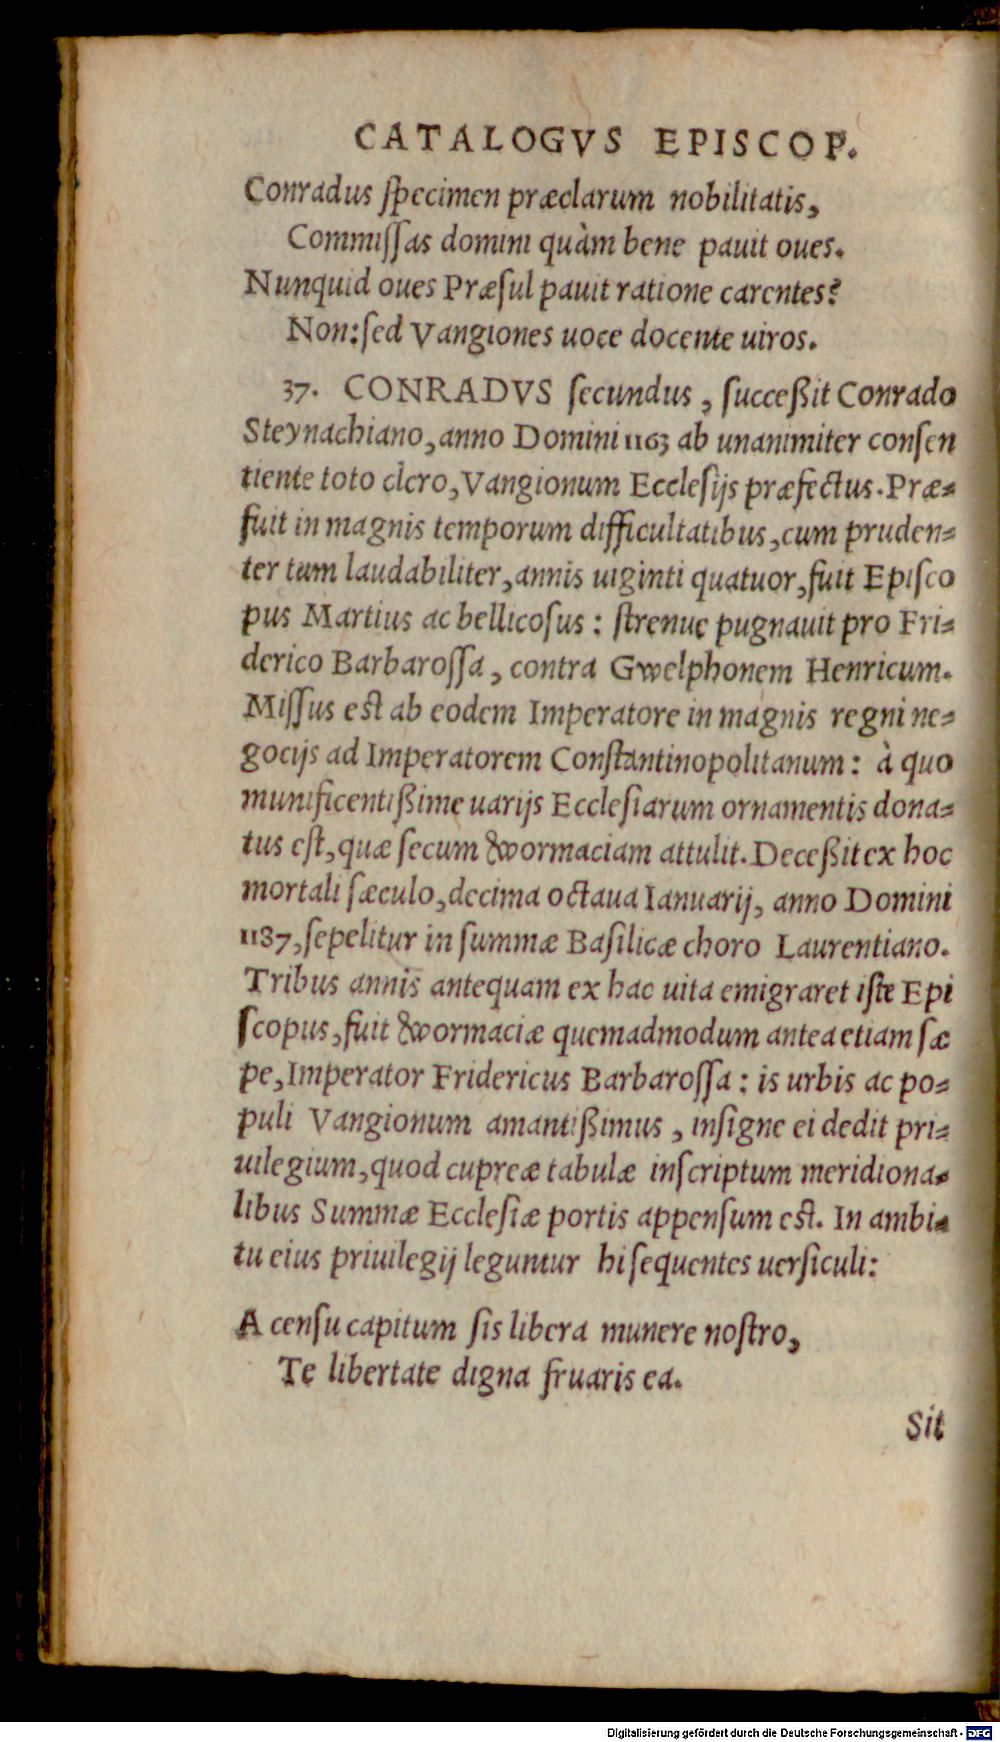 CATALOGVS EPISCOP.
Conradus specimen præclarum nobilitatis,
Commissas domini quàm bene pauit oues.
Nunquid oues Præsul pauit ratione carentes?
Non: sed Vangiones uoce docente uiros.
37. CONRADVS secundus, succeßit Conrado
Steynachiano, anno Domini 1163 ab unanimiter consen
tiente toto clero, Vangionum Ecclesijs præfectus. Præ-
fuit in magnis temporum difficultatibus, cum pruden-
ter tum laudabiliter, annis uiginti quatuor, fuit Episco
pus Martius ac bellicosus: strenue pugnauit pro Fri-
derico Barbarossa, contra Gwelphonem Henricum.
Missus est ab eodem Imperatore in magnis regni ne-
gocijs ad Imperatorem Constantinopolitanum: à quo
munificentißime uarijs Ecclesiarum ornamentis dona-
tus est, quæ secum &wormaciam attulit. Deceßit ex hoc
mortali sæculo, decima octaua Ianuarij, anno Domini
1187, sepelitur in summæ Basilicæ choro Laurentiano.
Tribus annis antequam ex hac uita emigraret iste Epi
scopus, fuit &wormaciæ quemadmodum antea etiam sæ
pe, Imperator Fridericus Barbarossa: is urbis ac po-
puli Vangionum amantißimus, insigne ei dedit pri-
uilegium, quod cupreæ tabulæ inscriptum meridiona-
libus Summæ Ecclesiæ portis appensum est. In ambi-
tu eius priuilegij leguntur hi sequentes uersiculi:
A censu capitum sis libera munere nostro,
Te libertate digna fruaris ea.
Sit
Digitalisierung gefördert durch die Deutsche Forschungsgemeinschaft - DFG